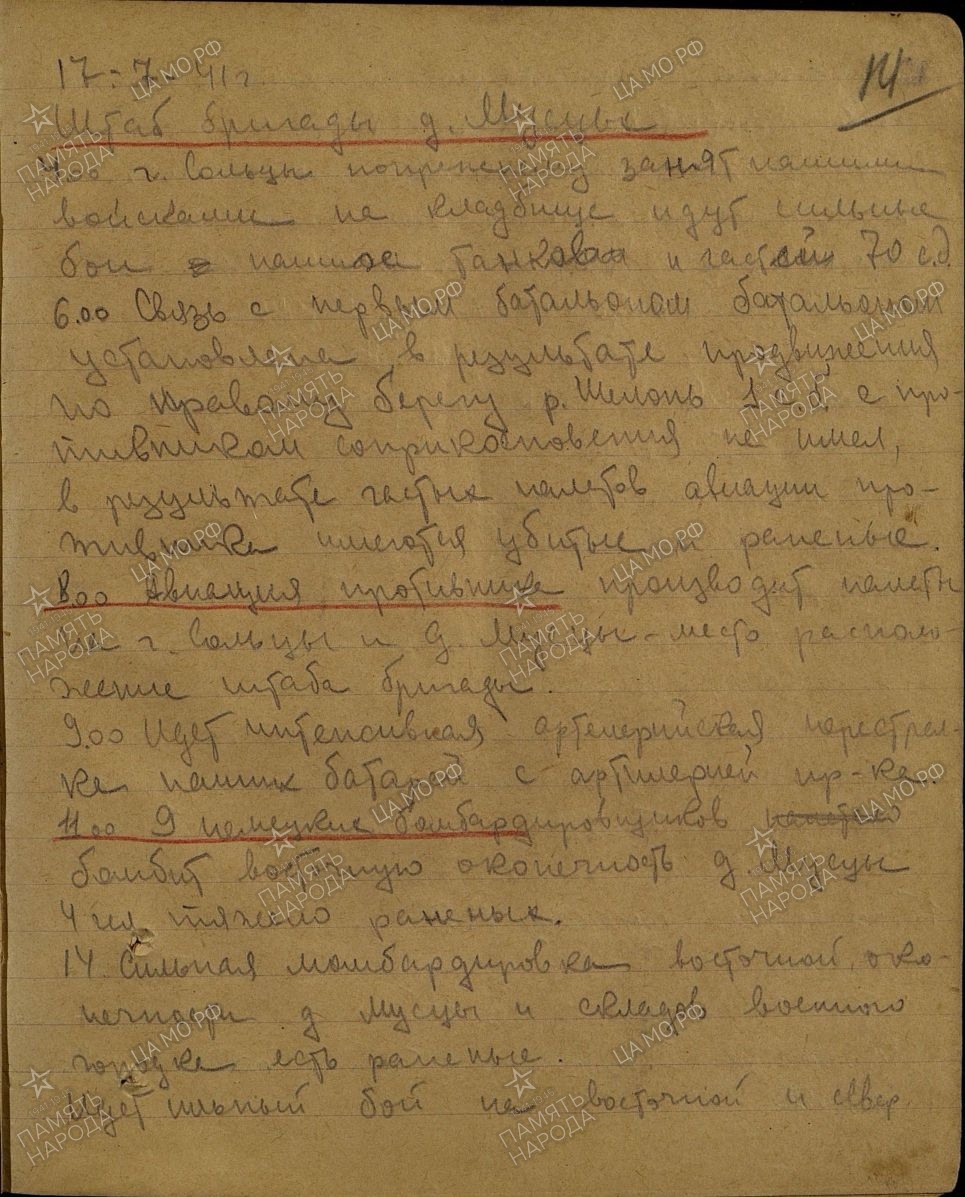 14
17-7-41г.
Штаб бригады д. Мусцы
г. Сольцы попрежнему занят нашими
войсками на кладбище идут сильные
бои наших танков и частей 70 с.д.
6.00 Связь с первым батальоном батальоном
установлена, в результате продвижения
по правому берегу р. Шелонь 1 с про-
тивником соприкосновения не имел,
в результате частых налетов авиации про-
тивника имеются убитые и раненые.
8.00 Авиация противника производит налеты
на г. Сольцы и д. Мусцы - место располо-
жение штаба бригады.
9.00 Идет интенсивная артилерийская перестрел-
ка наших батарей с артилерией пр-ка.
11.00 9 немецких бомбардировщиков
бомбит восточную оконечность д. Мусцы
4 чел тяжело раненых.
14. Сильная момбардировка восточной око-
нечности д Мусцы и складов военного
городка есть раненые.
Идет сильный бой на восточной и север